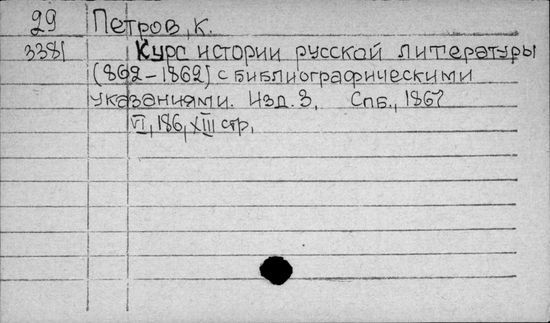 29 Петров, К.
3381 Курс истории русской литературы
(862-1862) с библиографическими
указаниями. Изд. 3, Спб., 1867
VI, 186, XIII стр.